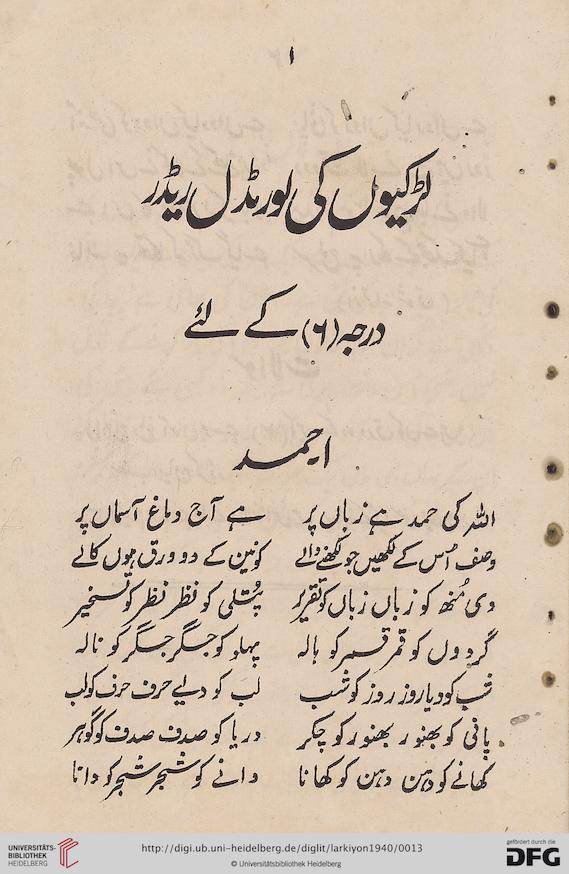 ۱
لڑکیوں کی لورمڈل ریڈر
درجہ (۶) کے لئے
۱۔حمد
اللہ کی حمد ہے زباں پر ہے آج دماغ آسماں پر
وصف اُس کے لکھیں جو لکھنے والے کونین کے دو ورق ہوں کالے
دی مُنھ کو زباں زباں کو تقریر پُتلی کو نظر نظر کو تسخیر
گردوں کو قمر قمر کو ہالہ پہلو کو جگر جگر کو نالہ
شب کو دیا روز روز کو شب لب کو دئیے حرف حرف کو لب
پانی کو بھنور بھنور کو چکر دریا کو صدف صدف کو گوہر
کھانے کو دہن دہن کو کھانا دانے کو شجر شجر کو دانا
UNIVERSITÄTS-
BIBLIOTHEK
HEIDELBERG
http://digi.ub.uni-heidelberg.de/diglit/larkiyon1940/0013
© Universitätsbibliothek Heidelberg
gefördert durch die
DFG